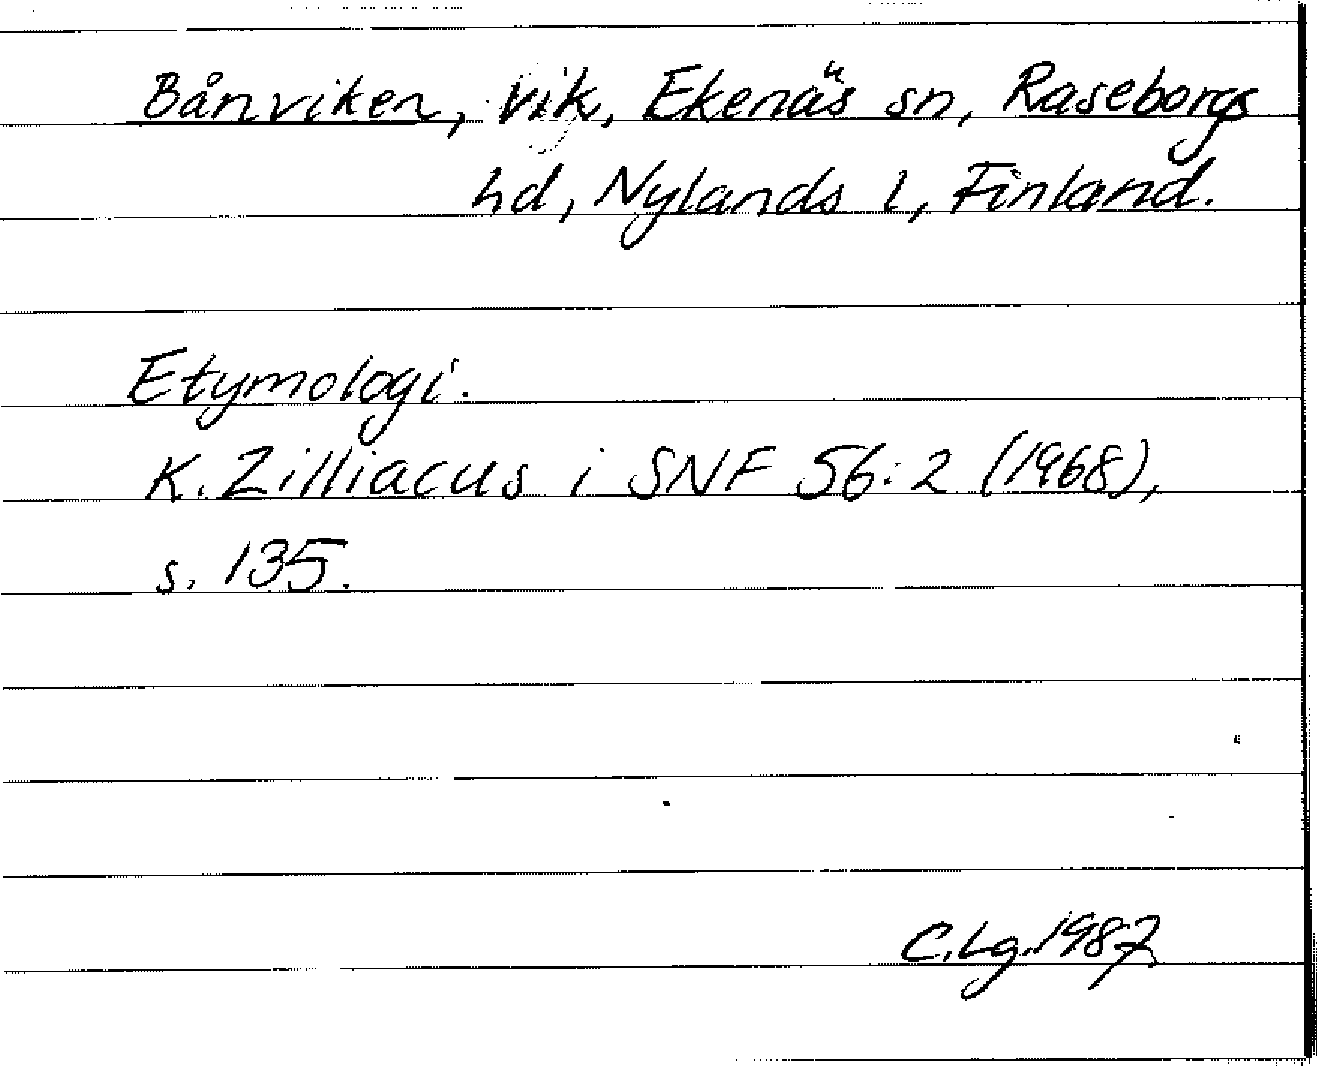 Bånviken, vik, Ekenäs sn, Raseborgs
hd, Nylands l, Finland.
Etymologi.
K. Zilliacus i SNF 56:2 (1968),
s. 135.
C.Lg.1987